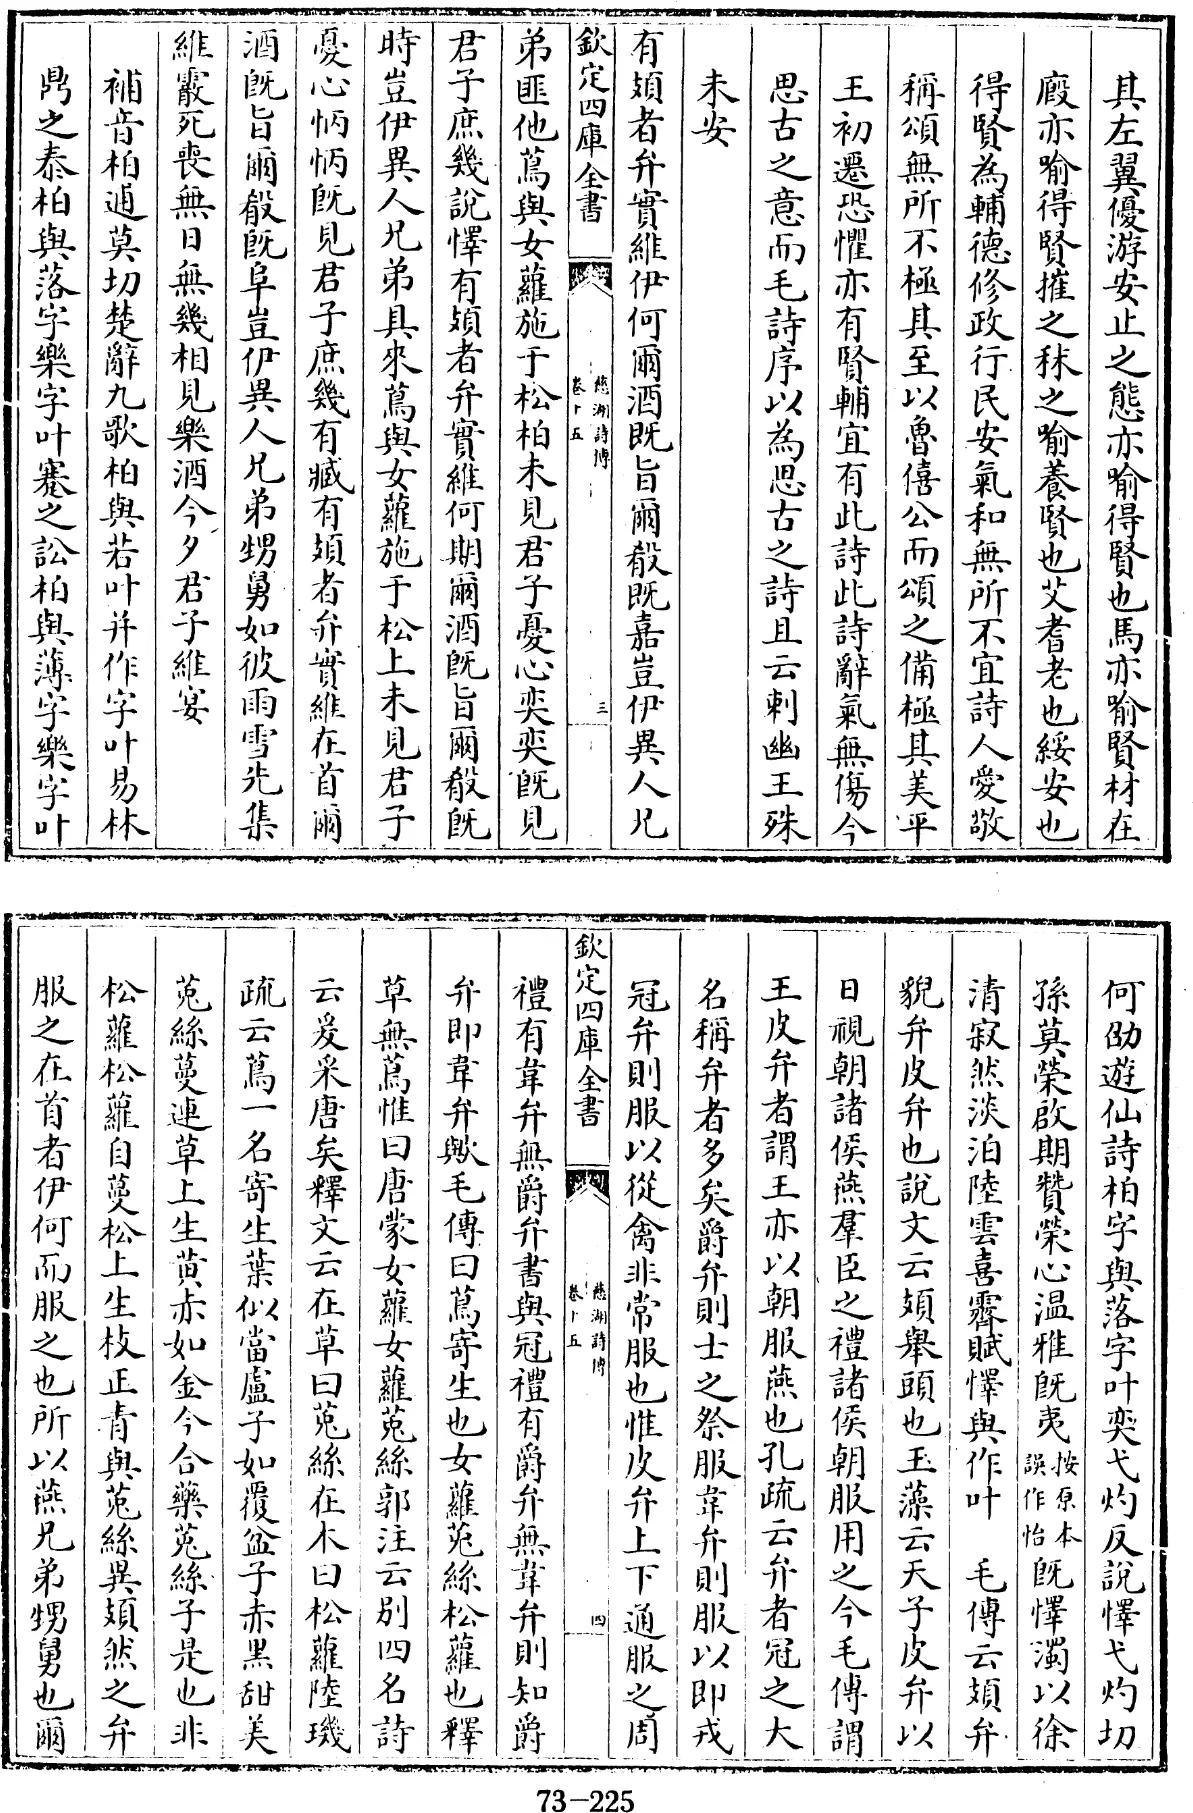 其左翼優游安止之態亦喻得賢也馬亦喻賢材在
廄亦喻得賢摧之秣之喻養賢也艾耆老也綏安也
得賢為輔德修政行民安氣和無所不宜詩人愛敬
稱頌無所不極其至以魯僖公而頌之備極其美平
王初遷恐懼亦有賢輔宜有此詩此詩辭氣無傷今
思古之意而毛詩序以為思古之詩且云刺幽王殊
未安
有頍者弁實維伊何爾酒既旨爾殽既嘉豈伊異人兄
欽定四庫全書
慈湖詩傳
卷十五
三
弟匪他蔦與女蘿施于松柏未見君子憂心奕奕既見
君子庶幾說懌有頍者弁實維何期爾酒既旨爾殽既
時豈伊異人兄弟具來蔦與女蘿施于松上未見君子
憂心怲怲既見君子庶幾有臧有頍者弁實維在首爾
酒既旨爾殽既阜豈伊異人兄弟甥舅如彼雨雪先集
維霰死喪無日無幾相見樂酒今夕君子維宴
補音柏逋莫切楚辭九歌柏與若叶并作字叶易林
鼎之泰柏與落字樂字叶蹇之訟柏與薄字樂字叶
何劭遊仙詩柏字與落字叶奕弋灼反說懌弋灼切
孫莫榮啟期贊榮心温雅既夷按原本誤作怡既懌濁以徐
清寂然淡泊陸雲喜霽賦懌與作叶　毛傳云頍弁
貌弁皮弁也說文云頍舉頭也玉藻云天子皮弁以
日視朝諸侯燕羣臣之禮諸侯朝服用之今毛傳謂
王皮弁者謂王亦以朝服燕也孔疏云弁者冠之大
名稱弁者多矣爵弁則士之祭服韋弁則服以即戎
冠弁則服以從禽非常服也惟皮弁上下通服之周
欽定四庫全書
慈湖詩傳
卷十五
四
禮有韋弁無爵弁書與冠禮有爵弁無韋弁則知爵
弁即韋弁歟毛傳曰蔦寄生也女蘿菟絲松蘿也釋
草無蔦惟曰唐蒙女蘿女蘿菟絲郭注云别四名詩
云爰采唐矣釋文云在草曰菟絲在木曰松蘿陸璣
疏云蔦一名寄生葉似當盧子如覆盆子赤黑甜美
菟絲蔓連草上生黄赤如金今合藥菟絲子是也非
松蘿松蘿自蔓松上生枝正青與菟絲異頍然之弁
服之在首者伊何而服之也所以燕兄弟甥舅也爾
73-225